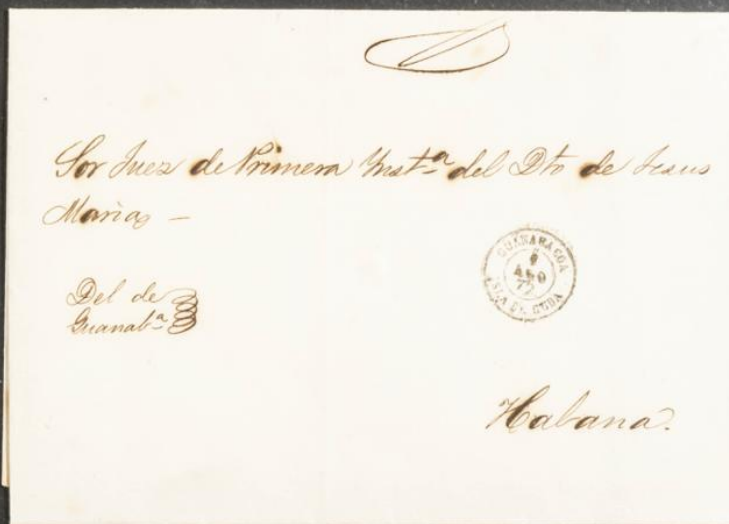 Sor Juez de Primera Ynst.ª del Dto de Jesus
Maria –
Del de
Guanab.ª
GUANABACOA
AGO
72
ISLA DE CUBA
Habana.